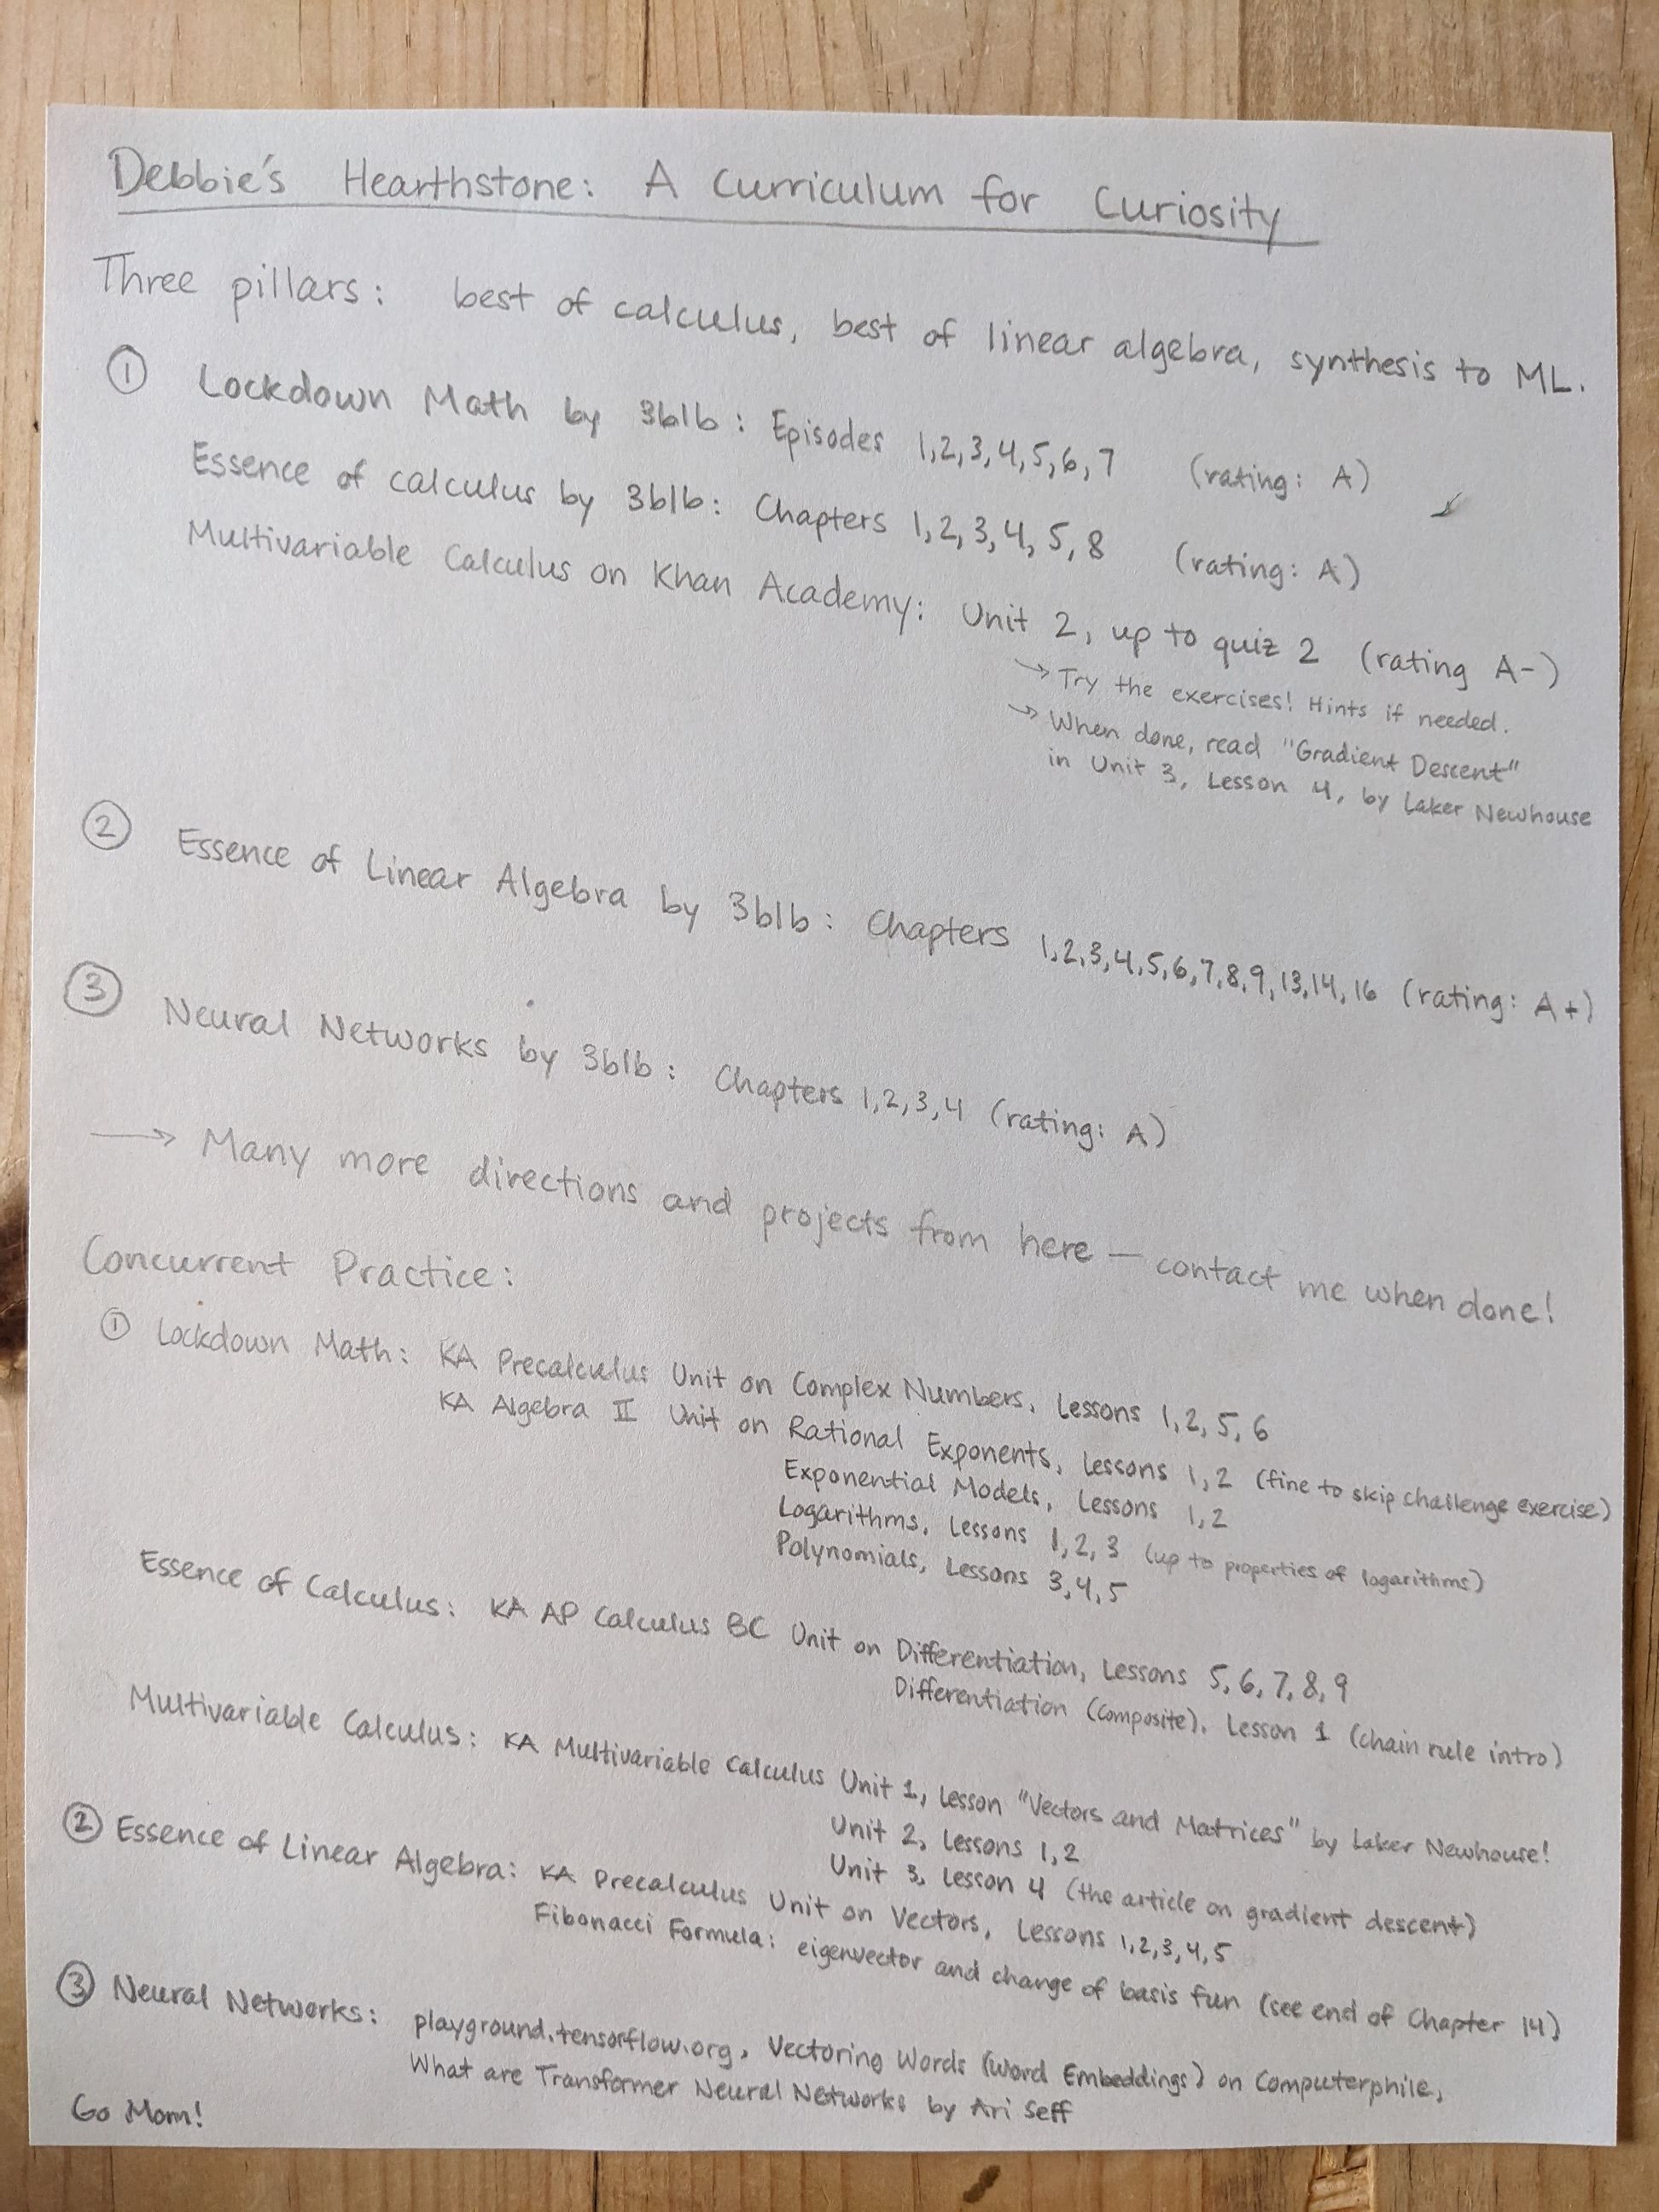 Debbie's Hearthstone: A Curriculum for Curiosity
Three pillars: best of calculus, best of linear algebra, synthesis to ML.
① Lockdown Math by 3b1b: Episodes 1,2,3,4,5,6,7 (rating: A)
Essence of calculus by 3b1b: Chapters 1,2,3,4,5,8 (rating: A)
Multivariable Calculus on Khan Academy: Unit 2, up to quiz 2 (rating A-)
→ Try the exercises! Hints if needed.
→ When done, read "Gradient Descent"
in Unit 3, Lesson 4, by Laker Newhouse
② Essence of Linear Algebra by 3b1b: Chapters 1,2,3,4,5,6,7,8,9,13,14,16 (rating: A+)
③ Neural Networks by 3b1b: Chapters 1,2,3,4 (rating: A)
→ Many more directions and projects from here — contact me when done!
Concurrent Practice:
① Lockdown Math: KA Precalculus Unit on Complex Numbers, Lessons 1,2,5,6
KA Algebra II Unit on Rational Exponents, Lessons 1,2 (fine to skip challenge exercise)
Exponential Models, Lessons 1,2
Logarithms, Lessons 1,2,3 (up to properties of logarithms)
Polynomials, Lessons 3,4,5
Essence of Calculus: KA AP Calculus BC Unit on Differentiation, Lessons 5,6,7,8,9
Differentiation (Composite), Lesson 1 (chain rule intro)
Multivariable Calculus: KA Multivariable Calculus Unit 1, Lesson "Vectors and Matrices" by Laker Newhouse!
Unit 2, Lessons 1,2
Unit 3, Lesson 4 (the article on gradient descent)
② Essence of Linear Algebra: KA Precalculus Unit on Vectors, Lessons 1,2,3,4,5
Fibonacci Formula: eigenvector and change of basis fun (see end of Chapter 14)
③ Neural Networks: playground.tensorflow.org, Vectoring Words (Word Embeddings) on Computerphile,
What are Transformer Neural Networks by Ari Seff
Go Mom!